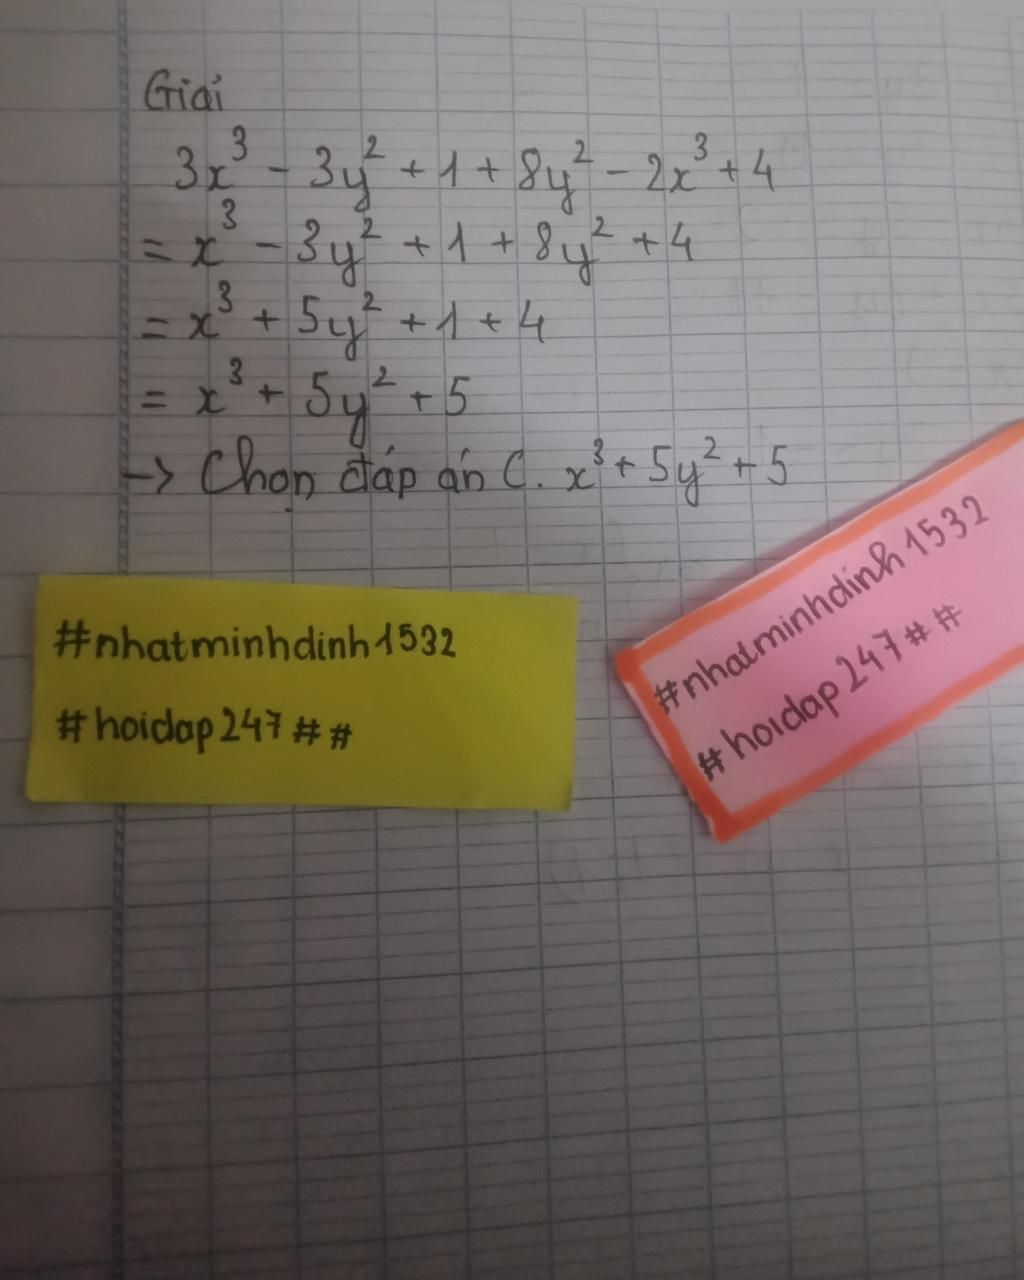 Giải
3x³ - 3y² + 1 + 8y² - 2x³ + 4
= x³ - 3y² + 1 + 8y² + 4
= x³ + 5y² + 1 + 4
= x³ + 5y² + 5
-> Chọn đáp án C. x³ + 5y² + 5
#nhatminhdinh1532
#hoidap247##
#nhatminhdinh1532
#hoidap247##